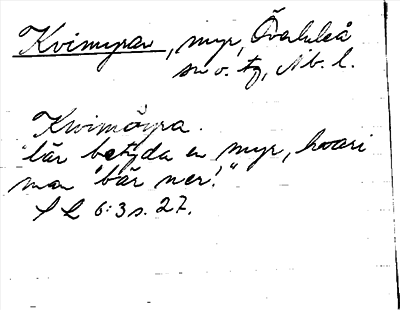 Kvimyran, myr, Överluleå
sn o. tg, Nb. l.
Kvimöyra.
lär betyda en myr, hvari
man "bär ner!"
S L 6:3 s. 27.